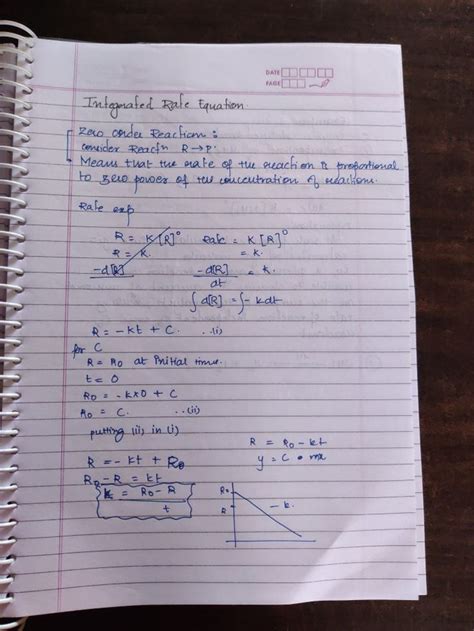 DATE
PAGE
Integrated Rate Equation
Zero Order Reaction :
consider Reactn R → P.
Means that the rate of the reaction is proportional
to zero power of the concentration of reactions.
Rate exp
R = K[R]⁰ Rate = K[R]⁰
R = K. = K.
-d[R] -d[R]/dt = k.
∫d[R] = ∫-kdt
R = -kt + C. ...(i)
for C
R = R₀ at initial time.
t = 0
R₀ = -k×0 + C
R₀ = C. ...(ii)
putting (ii) in (i)
R = -kt + R₀
R₀ - R = kt
k = R₀ - R / t
R = R₀ - kt
y = C • mx
R₀
R
-k.